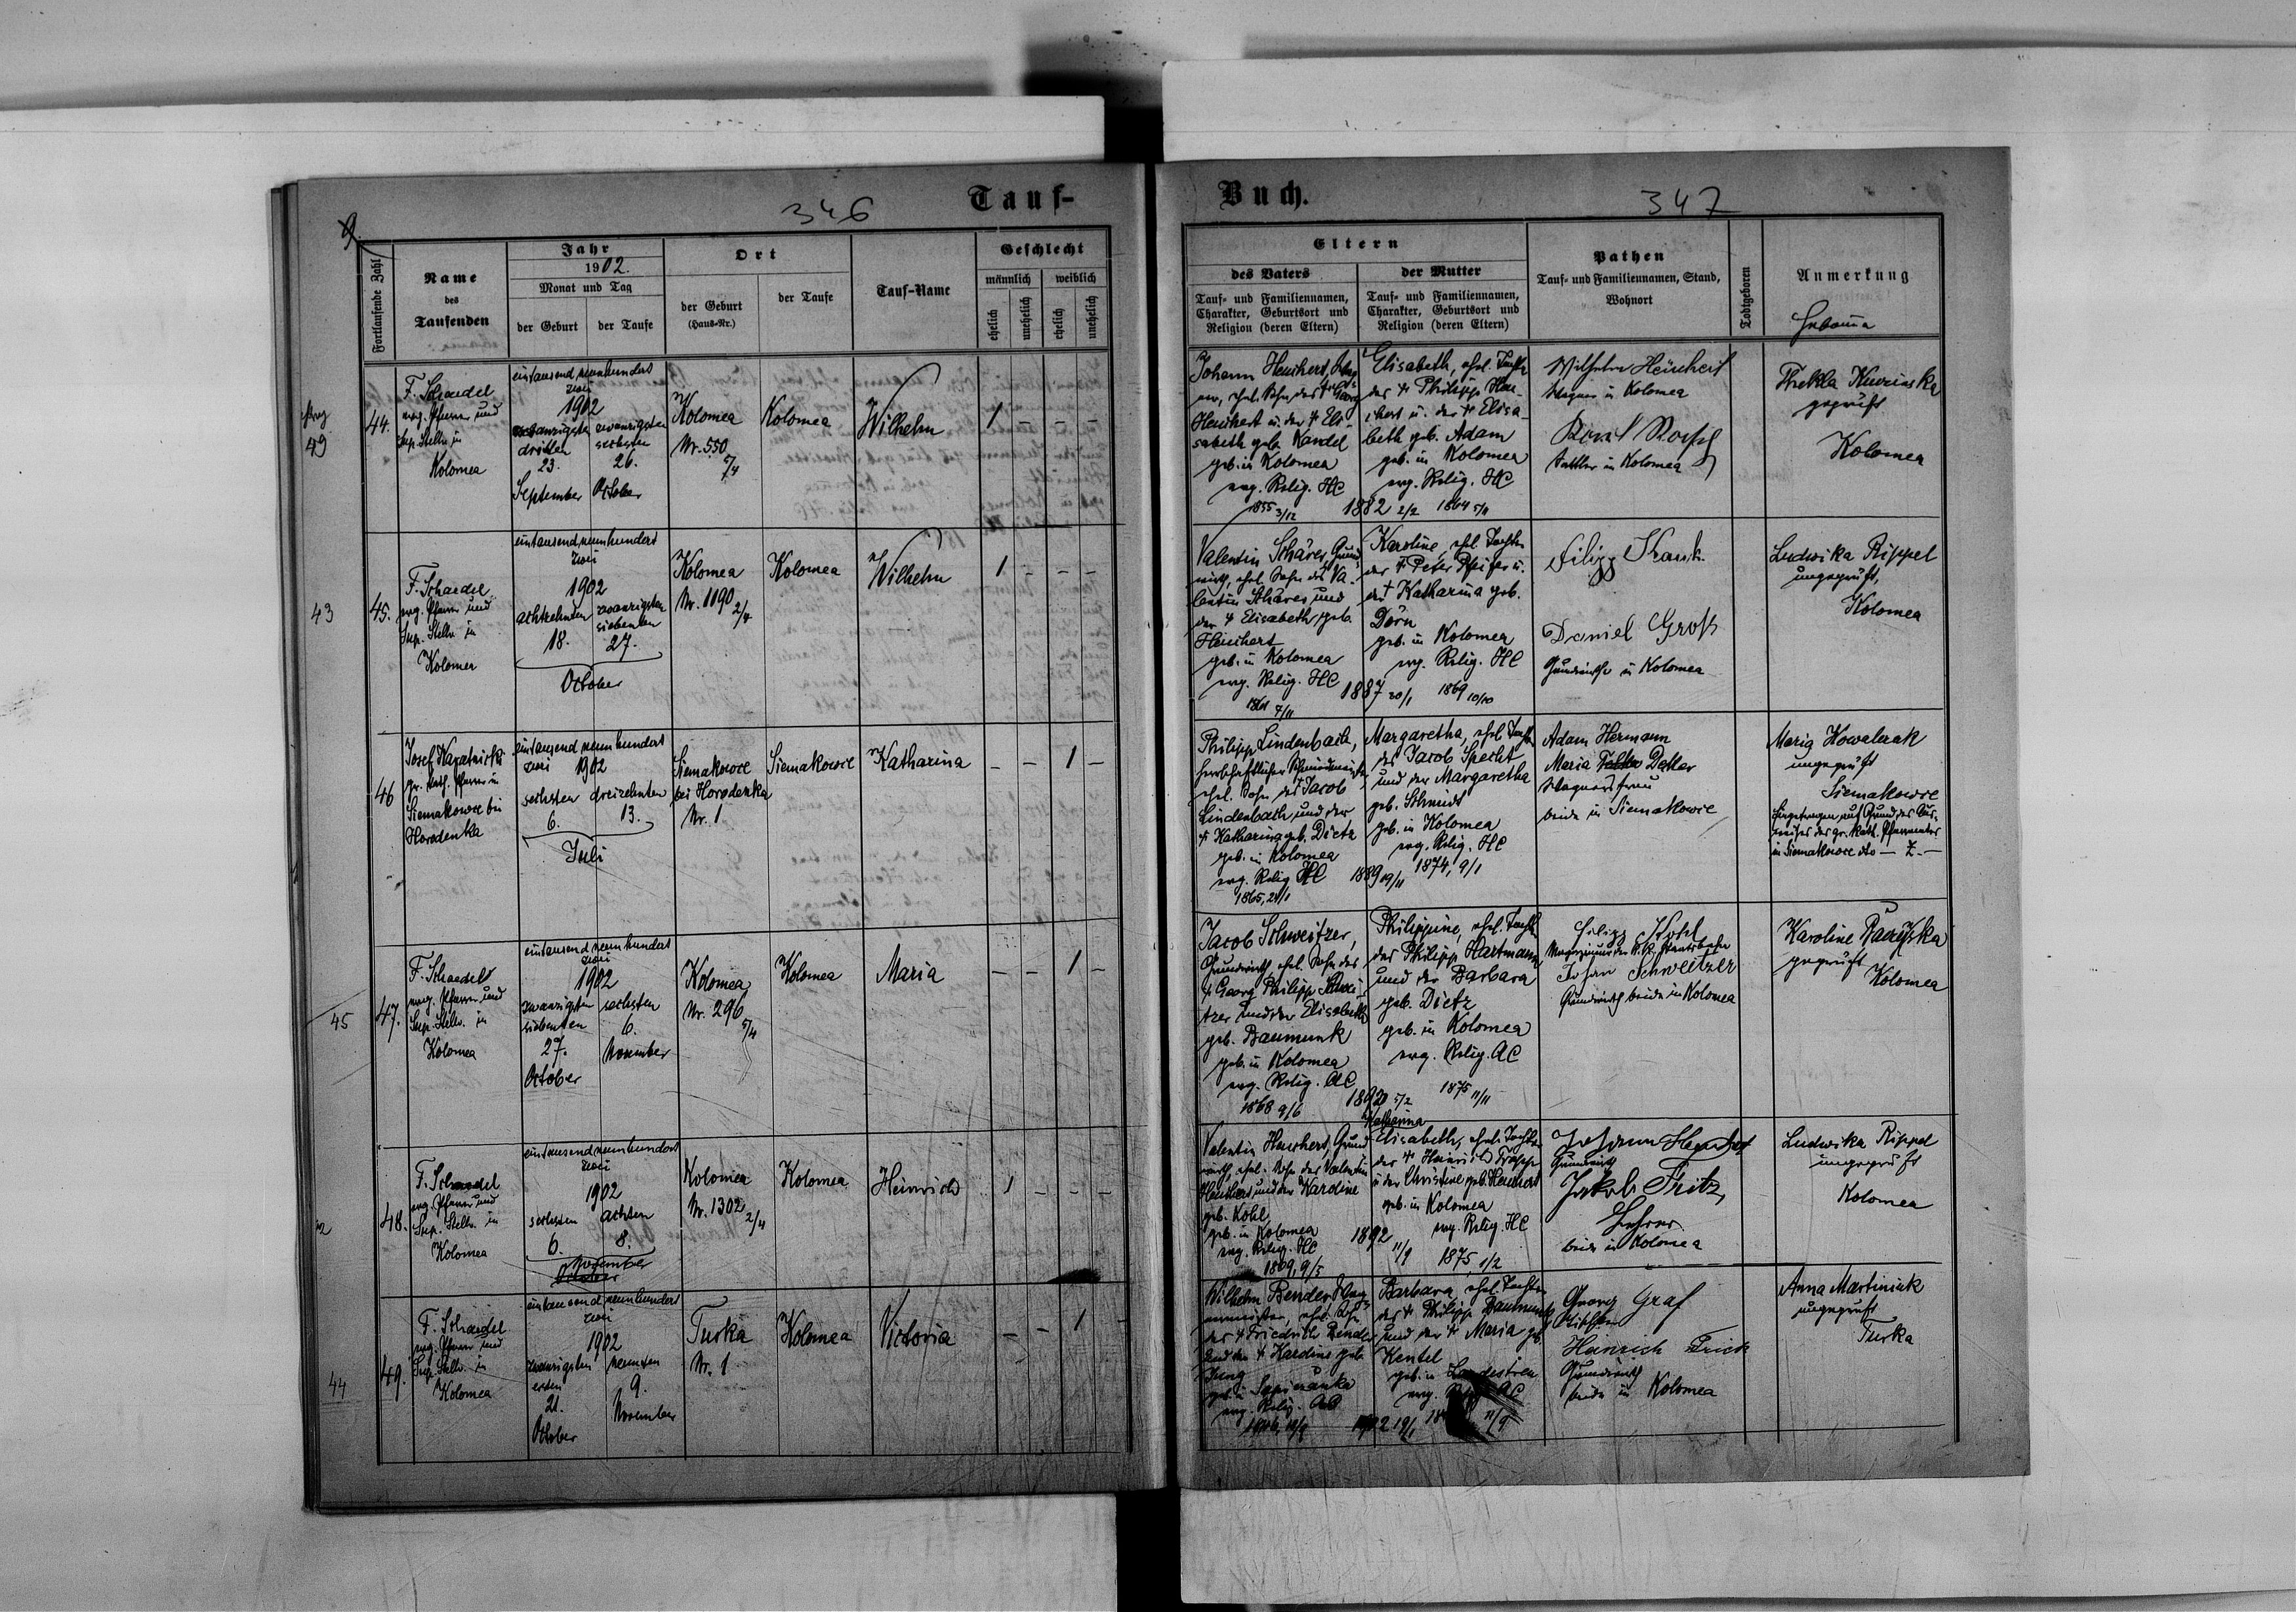 346
Tauf-
9.
Fortlaufende Zahl
Name
des
Taufenden
Jahr
1902.
Monat und Tag
der Geburt
der Taufe
Ort
der Geburt
(Haus-Nr.)
der Taufe
Tauf-Name
Geschlecht
männlich
weiblich
ehelich
unehelich
ehelich
unehelich
49
44.
F. Schaedel
evg. Pfarrer und
Sup. Stellv. in
Kolomea
eintausend neunhundert
zwei
1902
dritten
23.
September
zwanzigsten
sechsten
26.
October
Kolomea
Nr. 550
Kolomea
Wilhelm
1 - - -
43
45.
F. Schaedel
evg. Pfarrer und
Sup. Stellv. in
Kolomea
eintausend neunhundert
zwei
1902
achtzehnten
18.
zwanzigsten
siebenten
27.
October
Kolomea
Nr. 1190 2/4
Kolomea
Wilhelm
1 - - -
46
Josef
gr. kath. Pfarrer in
Siemakowce bei
Horodenka
eintausend neunhundert
zwei 1902
sechsten dreizehnten
6. 13.
Juli
Siemakowce
bei Horodenka
Nr. 1
Siemakowce
Katharina
- - 1 -
45
47.
F. Schaedel
evg. Pfarrer und
Sup. Stellv. in
Kolomea
eintausend neunhundert
zwei
1902
zwanzigsten
siebenten
27.
October
sechsten
6.
November
Kolomea
Nr. 296
5/4
Kolomea
Maria
- - 1 -
48.
F. Schaedel
evg. Pfarrer und
Sup. Stellv. in
Kolomea
eintausend neunhundert
zwei
1902
sechsten achten
6. 8.
November
October
Kolomea
Nr. 1302 2/4
Kolomea
Heinrich
1 - - -
44
49.
F. Schaedel
evg. Pfarrer und
Sup. Stellv. in
Kolomea
eintausend neunhundert
zwei
1902
zwanzigsten
ersten
21.
October
neunten
9.
November
Turka
Nr. 1
Kolomea
Victoria
- - 1 -
Buch.
347
Eltern
des Vaters
Tauf- und Familiennamen,
Charakter, Geburtsort und
Religion (deren Eltern)
der Mutter
Tauf- und Familiennamen,
Charakter, Geburtsort und
Religion (deren Eltern)
Pathen
Tauf- und Familiennamen, Stand,
Wohnort
Todtgeboren
Anmerkung
Johann Heuchert,
ehel. Sohn des † Georg
Heuchert u. der † Eli-
sabeth geb. Kandel
geb. in Kolomea
evg. Relig. HC
1855 3/12
Elisabeth, ehel. Tochter
des † Philipp Heu-
chert u. der † Elisa-
beth geb. Adam
geb. in Kolomea
evg. Relig. HC
1882 2/2 1864 5/11
Wilhelm Heuchert
Wagner in Kolomea
Sattler in Kolomea
Thekla
geprüft
Kolomea
Valentin Schäres, Grund-
wirth, ehel. Sohn des Va-
lentin Schäres und
der † Elisabeth, geb.
Heuchert
geb. in Kolomea
evg. Relig. HC
1861 7/11
Karoline, ehel. Tochter
des † Peter Pfeifer u.
der † Katharina geb.
Dörn
geb. in Kolomea
evg. Relig. HC
1887 20/1 1869 10/10
Filipp Frank
Daniel Groß
Grundwirthe in Kolomea
Ludwika Rippel
ungeprüft,
Kolomea
Philipp Lindenbach,
ehel. Sohn des Jacob
Lindenbach und der
† Katharina geb. Dietz
geb. in Kolomea
evg. Relig HC
1865, 24/1
Margaretha, ehel. Tochter
des Jacob Specht
und der Margaretha
geb. Schmidt
geb. in Kolomea
evg. Relig. HC
1889 19/11 1874, 9/1
Adam Hermann
Maria Detter
Wagnersfrau
beide in Siemakowce
Maria Kowalczak
ungeprüft
Siemakowce
Eingetragen auf Grund des Aus-
weises des gr. kath. Pfarramtes
in Siemakowce
Jacob Schweitzer,
Grundwirth ehel. Sohn des
† Georg Philipp Schwei-
tzer und der Elisabeth
geb. Baumunk
geb. in Kolomea
evg. Relig. AC
1868 9/6
Philippine, ehel. Tochter
des Philipp Hartmann
und der Barbara
geb. Dietz
geb. in Kolomea
evg. Relig. AC
1875 11/11
Filipp Kohl
Johan Schweitzer
Grundwirth beide in Kolomea
Karoline
geprüft
Kolomea
Valentin Heuchert, Grund-
wirth, ehel. Sohn des Valentin
Heuchert und der Karoline
geb. Kohl
geb. in Kolomea
evg. Relig. HC
1869, 9/5
Katharina
Elisabeth, ehel. Tochter
des † Heinrich
u. der Christine geb. Heuchert
geb. in Kolomea
evg. Relig. HC
1892 11/9 1875, 1/2
Johann Heuchert
Grundwirth
Jakob Fritz,
Lehrer
beide in Kolomea
Ludwika Rippel
ungeprüft
Kolomea
Wilhelm Bender,
ehel. Sohn
des † Friedrich Bender
und der † Karoline geb.
Jung
geb. in
evg. Relig. AC
Barbara, ehel. Tochter
des † Philipp Baumunk
und der † Maria geb.
Kentel
geb. in
evg. AC
Georg Graf
Heinrich Frick
Grundwirth
beide in Kolomea
Anna Martiniuk
ungeprüft
Turka